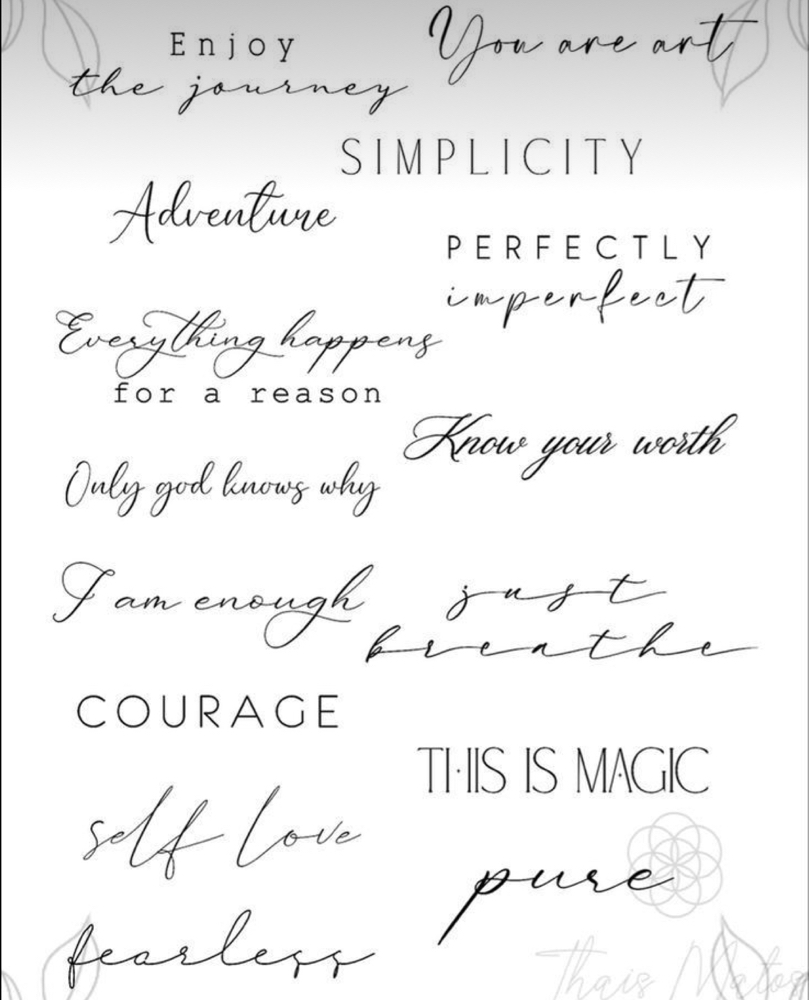 Enjoy
the journey
You are art
SIMPLICITY
Adventure
PERFECTLY
imperfect
Everything happens
for a reason
Know your worth
Only god knows why
I am enough
just
breathe
COURAGE
THIS IS MAGIC
self love
pure
fearless
Thais Matos